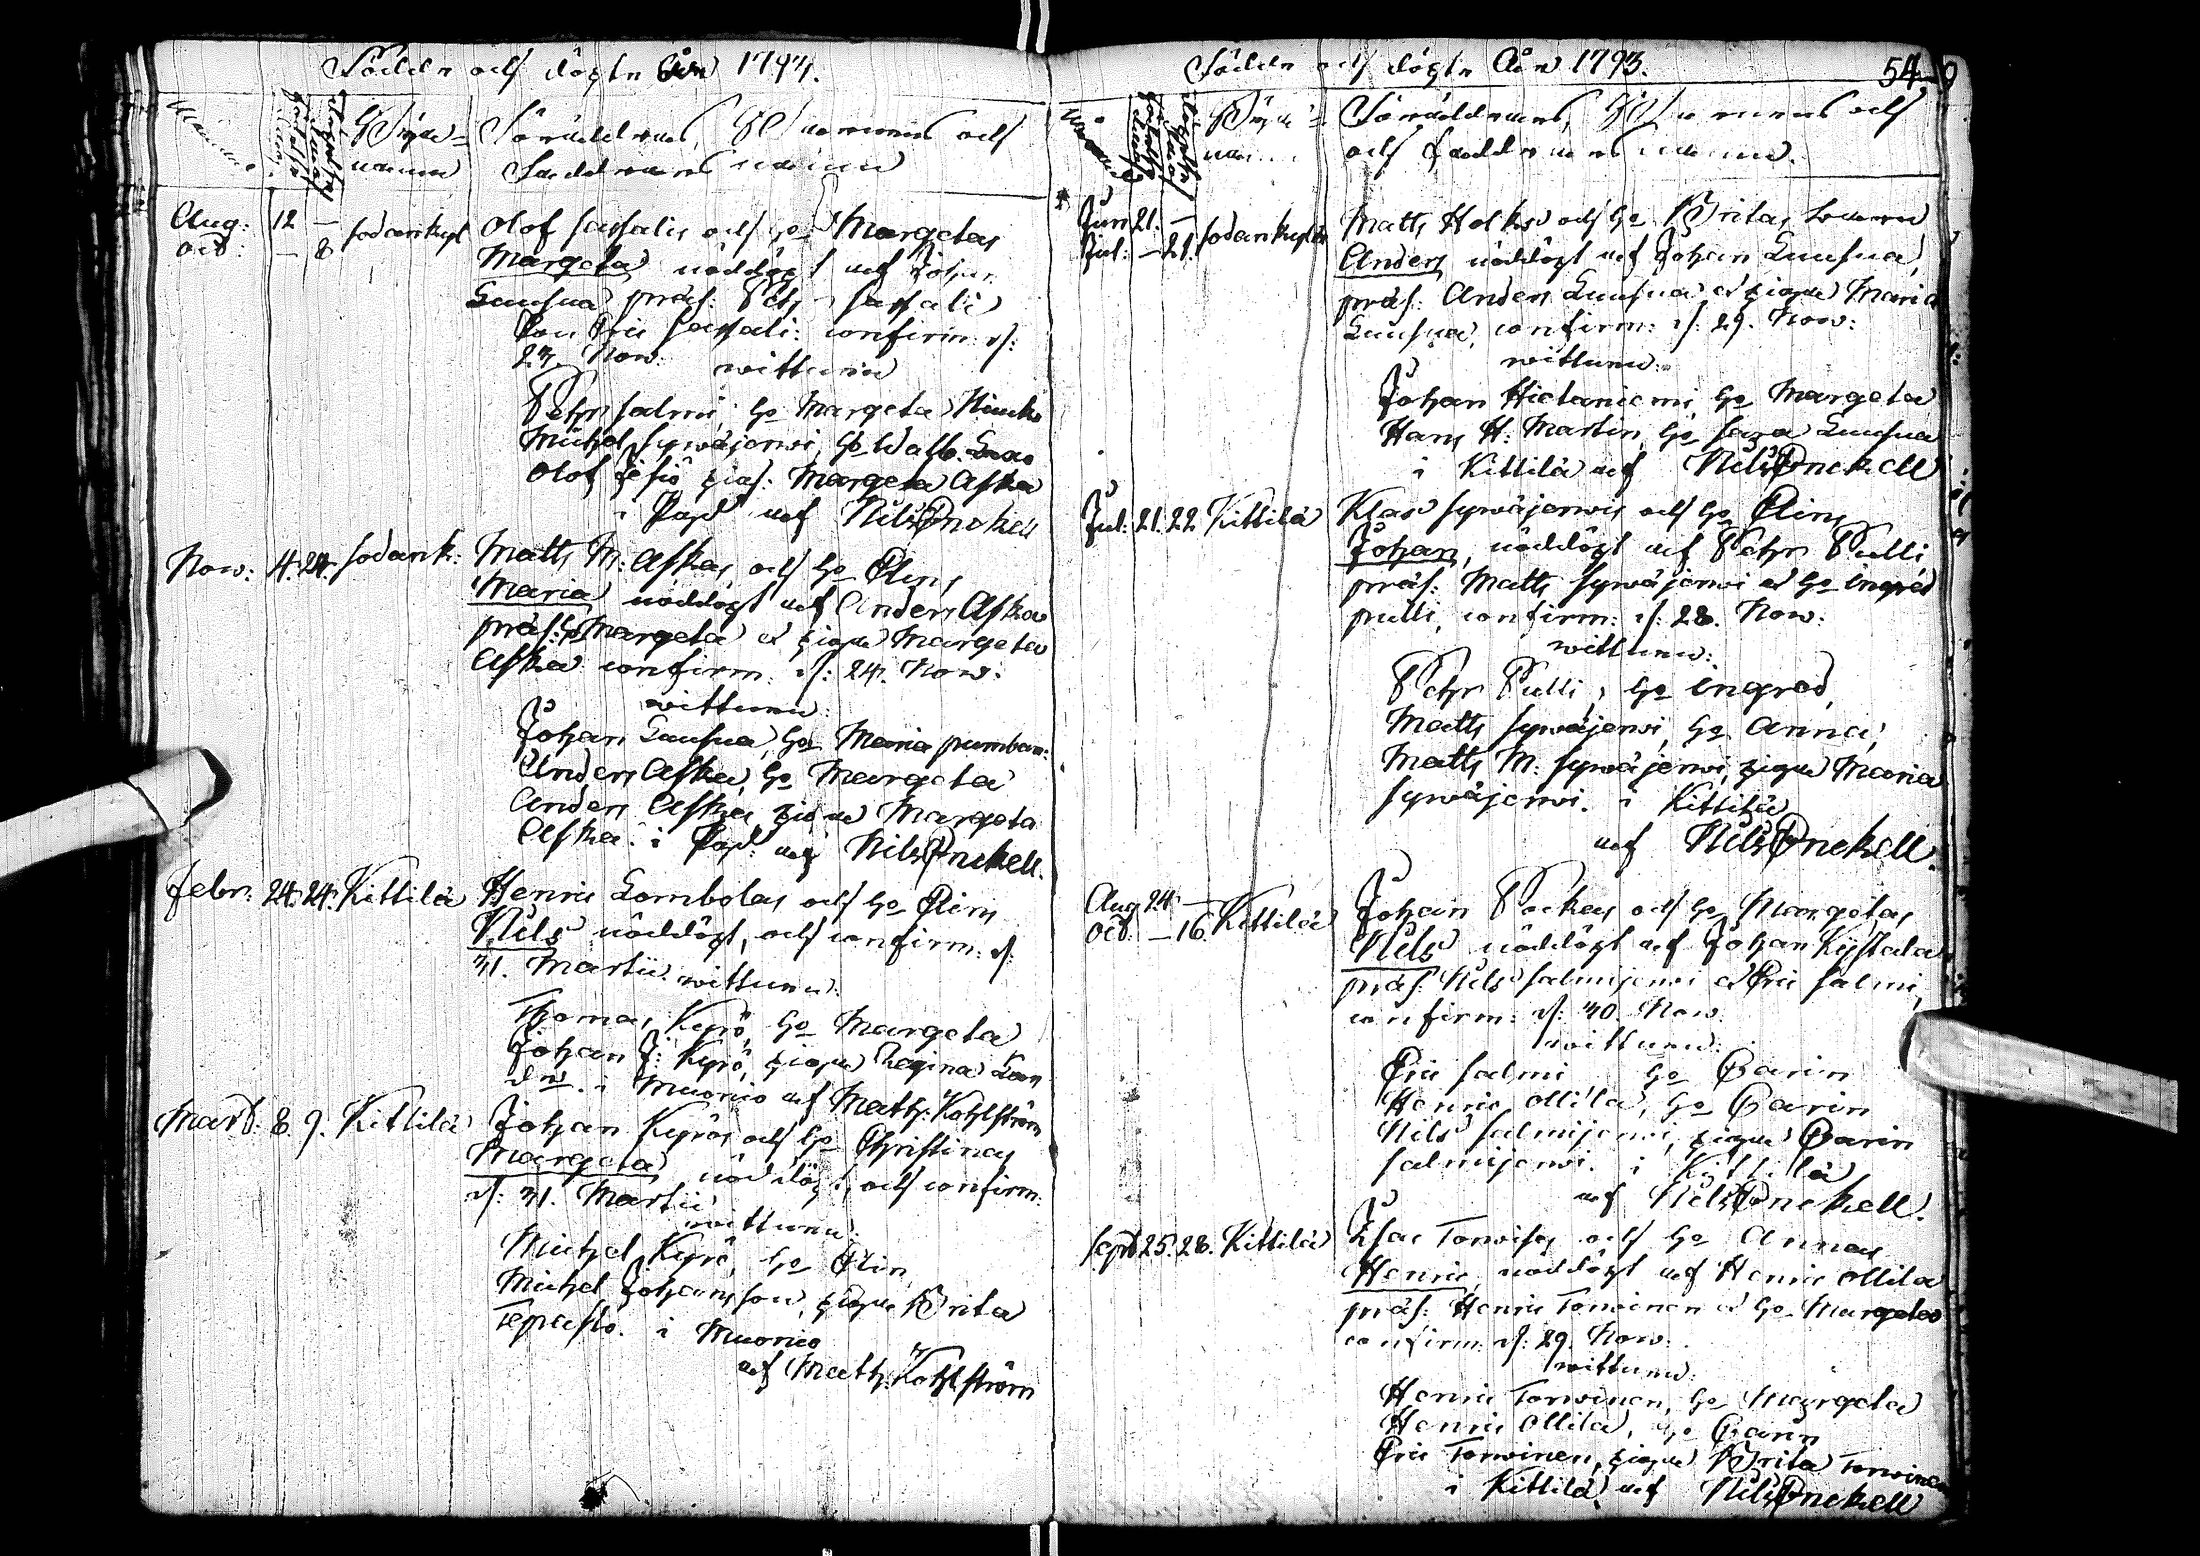 Födde och döpte År 1793.
Månad
födelse dag
döpelse dag
Byanamn
Föräldrarnas, Barnens och
Faddrarnas namn
Aug: 12 — Sodankyl
Oct: — 8
Olof Sassalis och ho Margetas
Margeta nöddöpt af Johan
Suusua præs: Pehr Sassali
Eric Sassali: confirm: d:
Now: wittnen
Pehr Salmi, ho Margeta
Michel Syväjerwi, ho Walb.
Olof pigs: Margeta Aska
i af Nils Enckell
Now: 4. 24. Sodank:
Matts M: Askas och ho Elins
Maria nöddöpt af Anders Aska
præs: ho Margeta et pigan Margeta
Aska confirm: d: 24. Now:
wittnen:
Johan Suusua, ho Maria
Anders Aska, ho Margeta
Anders Aska, pigan Margeta
Aska. i af Nils Enckell.
Febr: 24. 24. Kittilä
Henric Lombolas och ho Elins
Nils nöddöpt, och confirm: d:
31. Martii. wittnen:
Thomas Kyrö, ho Margeta
Johan J: Kyrö, pigan Regina
i Muonio af Math: Kohlström
Mart: 8. 9. Kittilä
Johan Kyrös och ho Christinas
Margeta nöddöpt, och confirm:
d: 31. Martii
wittnen:
Michel Kyrö, ho Elin
Michel Johansson, pigan Brita
Tepasto. i Muonio
af Math: Kohlström
Födde och döpte År 1793.
54
Månad
födelse dag
döpelse dag
Byanamn
Föräldrarnas, Barnens och
och faddrarnas namn.
Jun: 21. — Sodankylä
Jul: — 21.
Matts Holcks och ho Britas
Anders nöddöpt af Johan Suusua,
præs: Anders Suusua et pigan Maria
Suusua, confirm: d: 29. Now:
wittnen:
Johan Hietaniemi, ho Margeta
Hans H: Martin, ho Sara Suusua
i Kittilä af Nils Enckell
Jul: 21. 22 Kittilä
Klas Syväjerwis och ho Elins
Johan, nöddöpt af Pehr Pulli,
præs: Matts Syväjerwi et ho Ingred
Pulli, confirm: d: 28. Now:
wittnen:
Pehr Pulli, ho Ingred,
Matts Syväjerwi, ho Anna,
Matts M: Syväjerwi, pigan Maria
Syväjerwi. i Kittilä
af Nils Enckell.
Aug: 24. — Kittilä
Oct: — 16.
Johan Pockas och ho Margetas
Nils nöddöpt af Johan Kystala
præs: Nils Salmijerwi et Eric Salmi,
confirm: d: 30. Now:
wittnen:
Eric Salmi ho Carin
Henric Ollila, ho Carin
Nils Salmijerwi, pigan Carin
Salmijerwi. i Kittilä
af Nils Enckell.
Sept: 25. 28. Kittilä
Isac Torwises och ho Annas
Henric, nöddöpt af Henric Ollila
præs: Henric Torwinen et ho Margeta
confirm: d: 29. Now:
wittnen:
Henric Torwinen, ho Margeta
Henric Ollila, ho Carin
Eric Torwinen, pigan Brita Torwinen
i Kittilä, af Nils Enckell